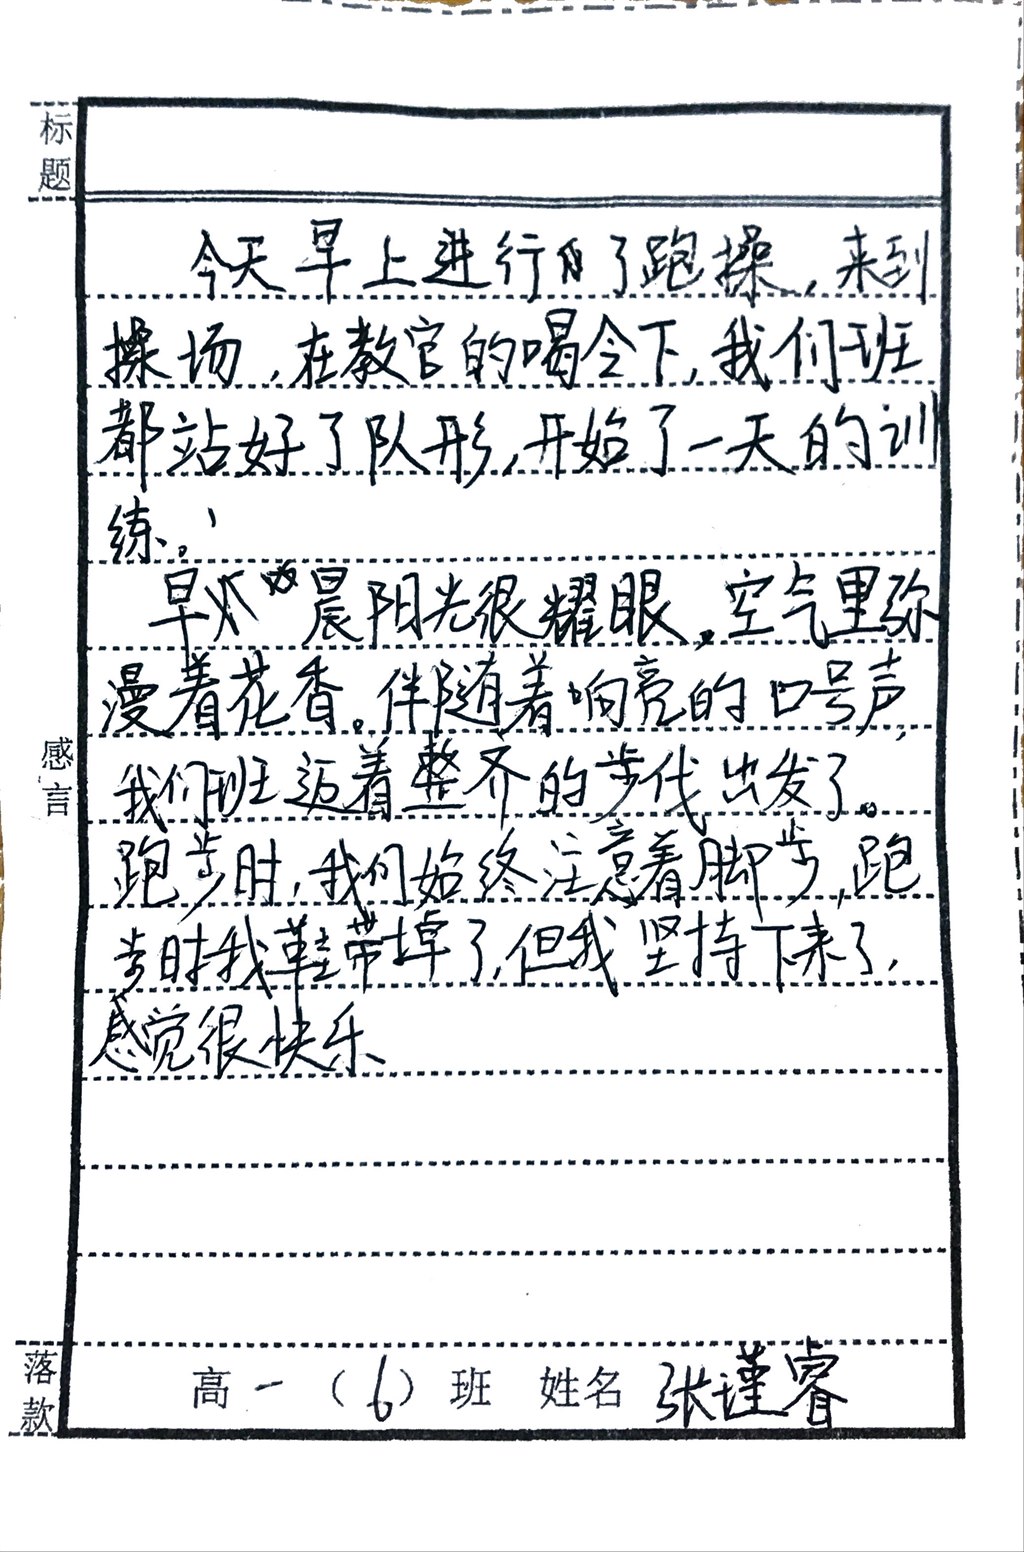 标题
今天早上进行了跑操，来到
操场，在教官的喝令下，我们班
都站好了队形，开始了一天的训
练。
早晨阳光很耀眼，空气里弥
漫着花香。伴随着响亮的口号声，
感言
我们班迈着整齐的步伐出发了。
跑步时，我们始终注意着脚步，跑
步时我鞋带掉了，但我坚持下来了，
感觉很快乐
落款
高一（6）班 姓名 张瑾睿